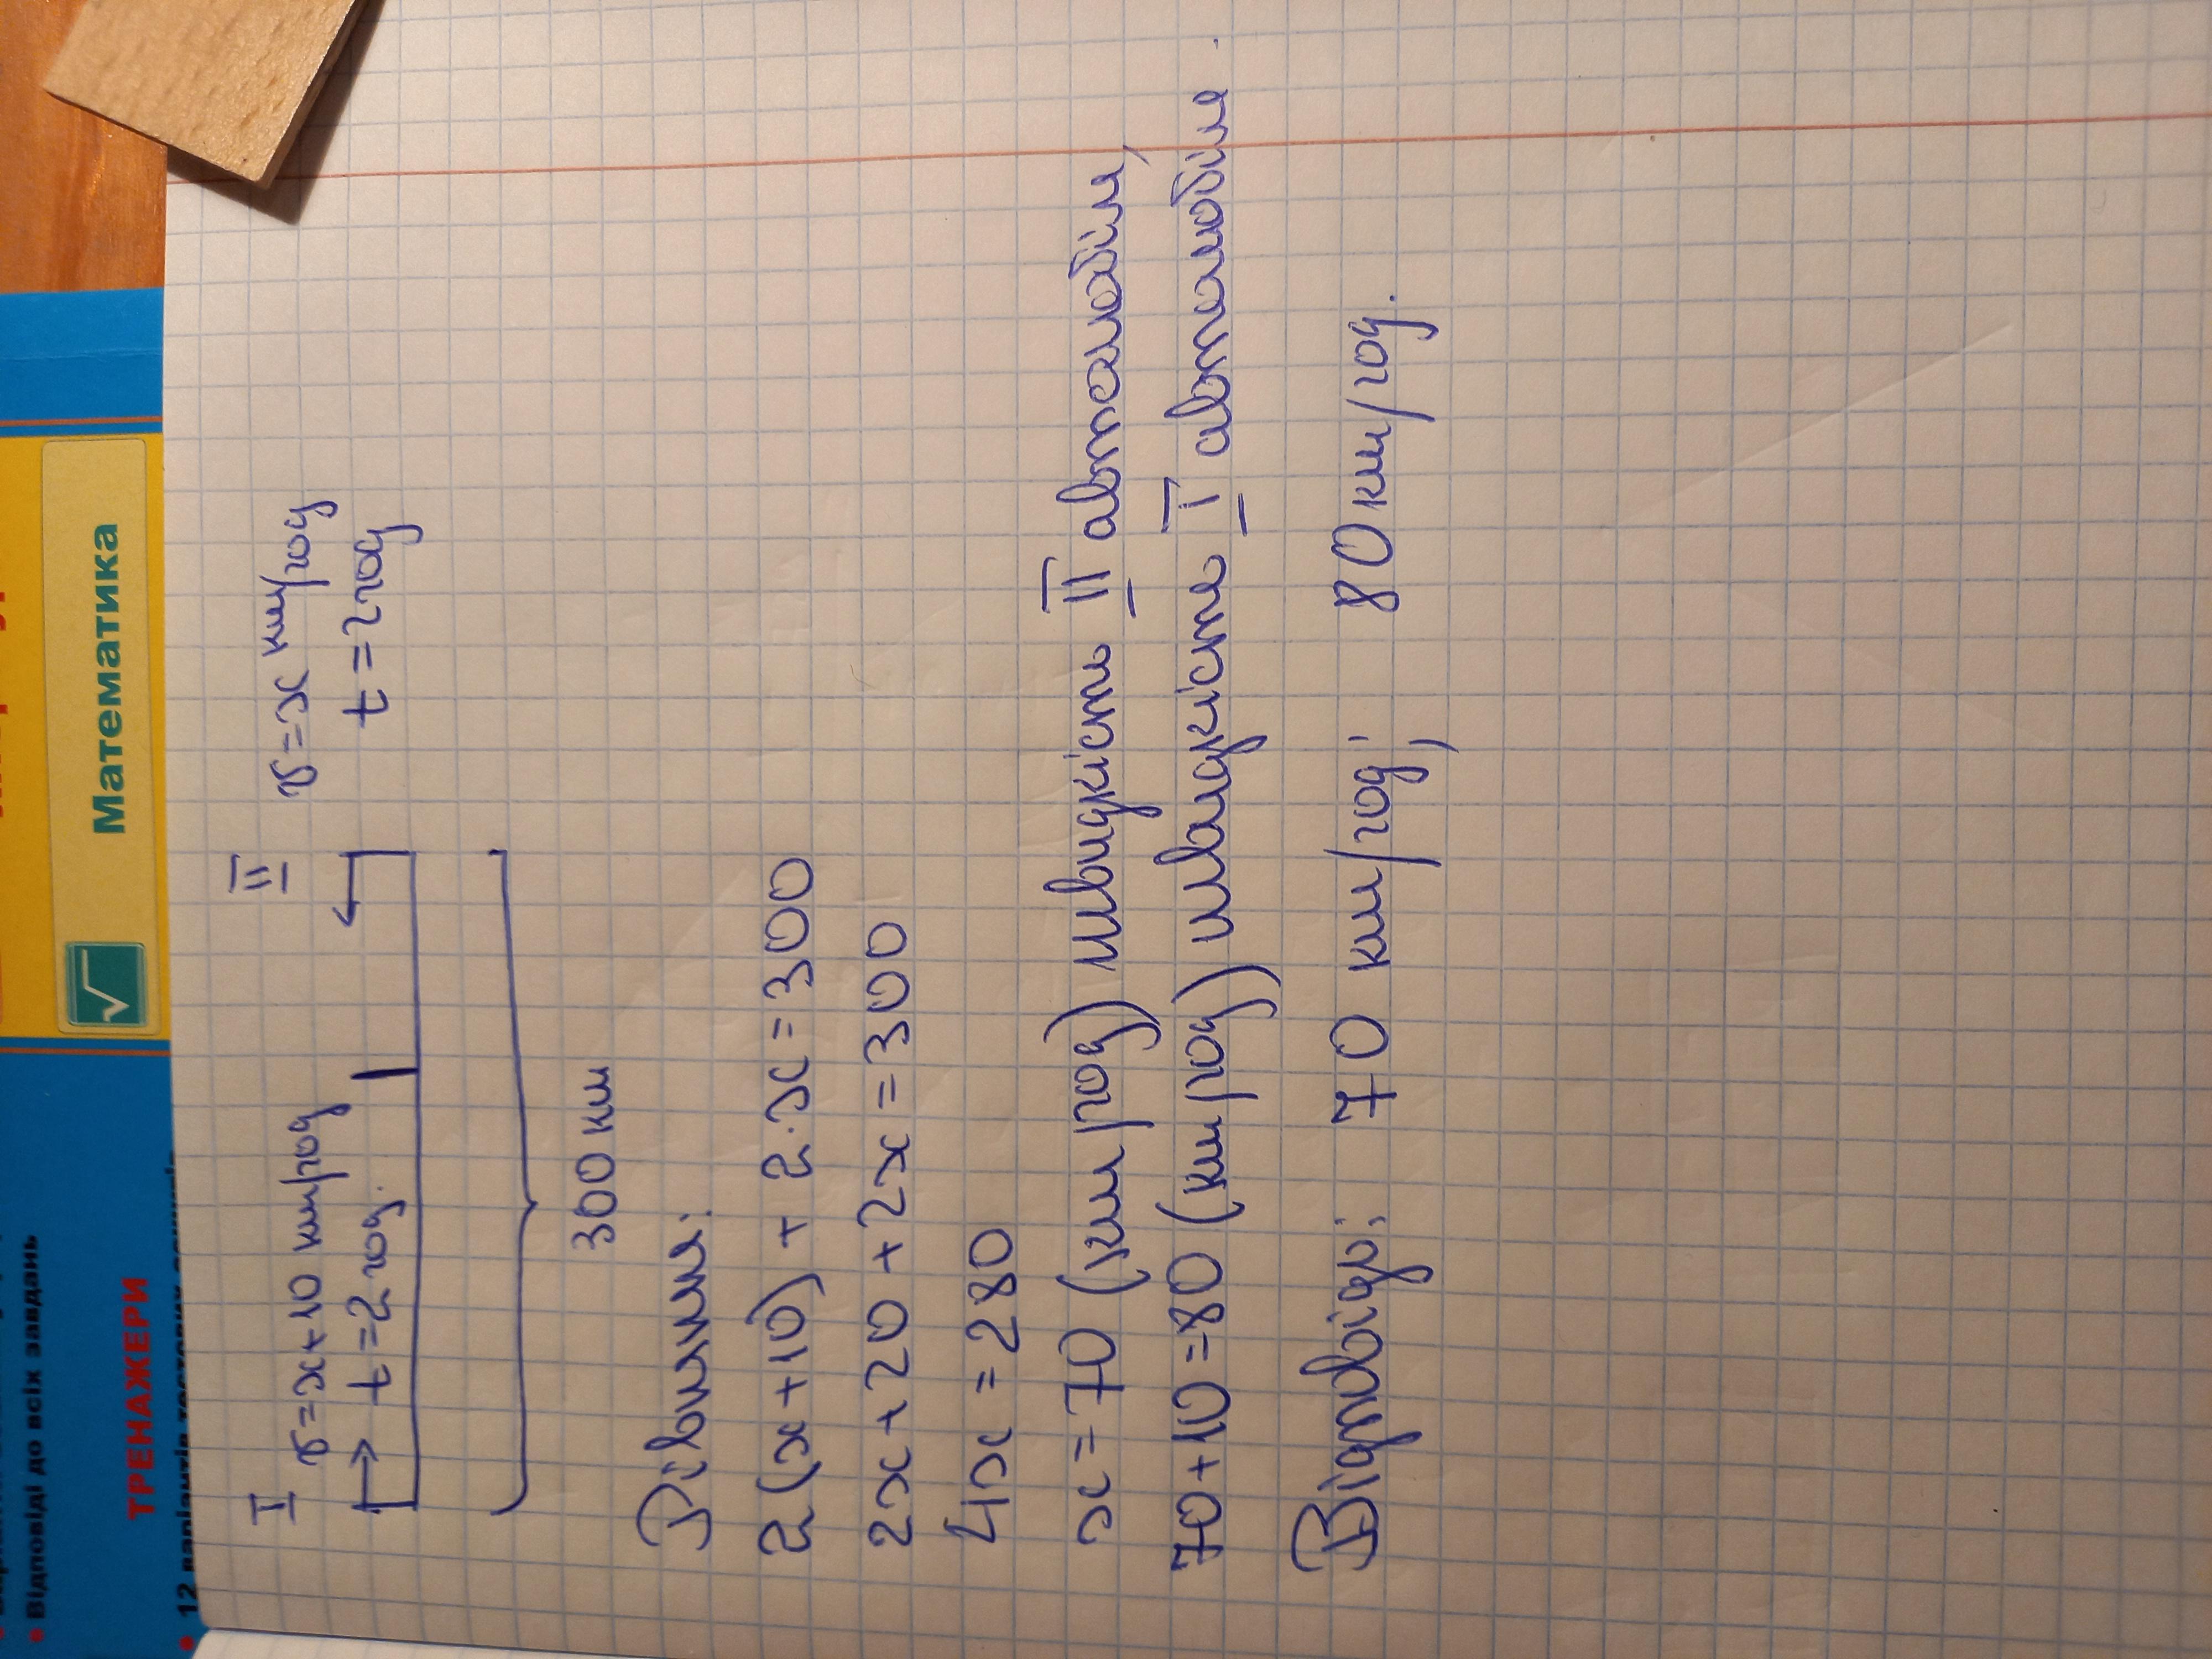 Математика
• Відповіді до всіх завдань
ТРЕНАЖЕРИ
I
II
v=x+10 км/год
t=2 год.
v=x км/год
t=2год
300 км
Рівняння:
2(x+10)+2·x=300
2x+20+2x=300
4x=280
x=70 (км/год) швидкість II автомобіля,
70+10=80 (км/год) швидкість I автомобіля.
Відповідь: 70 км/год; 80 км/год.